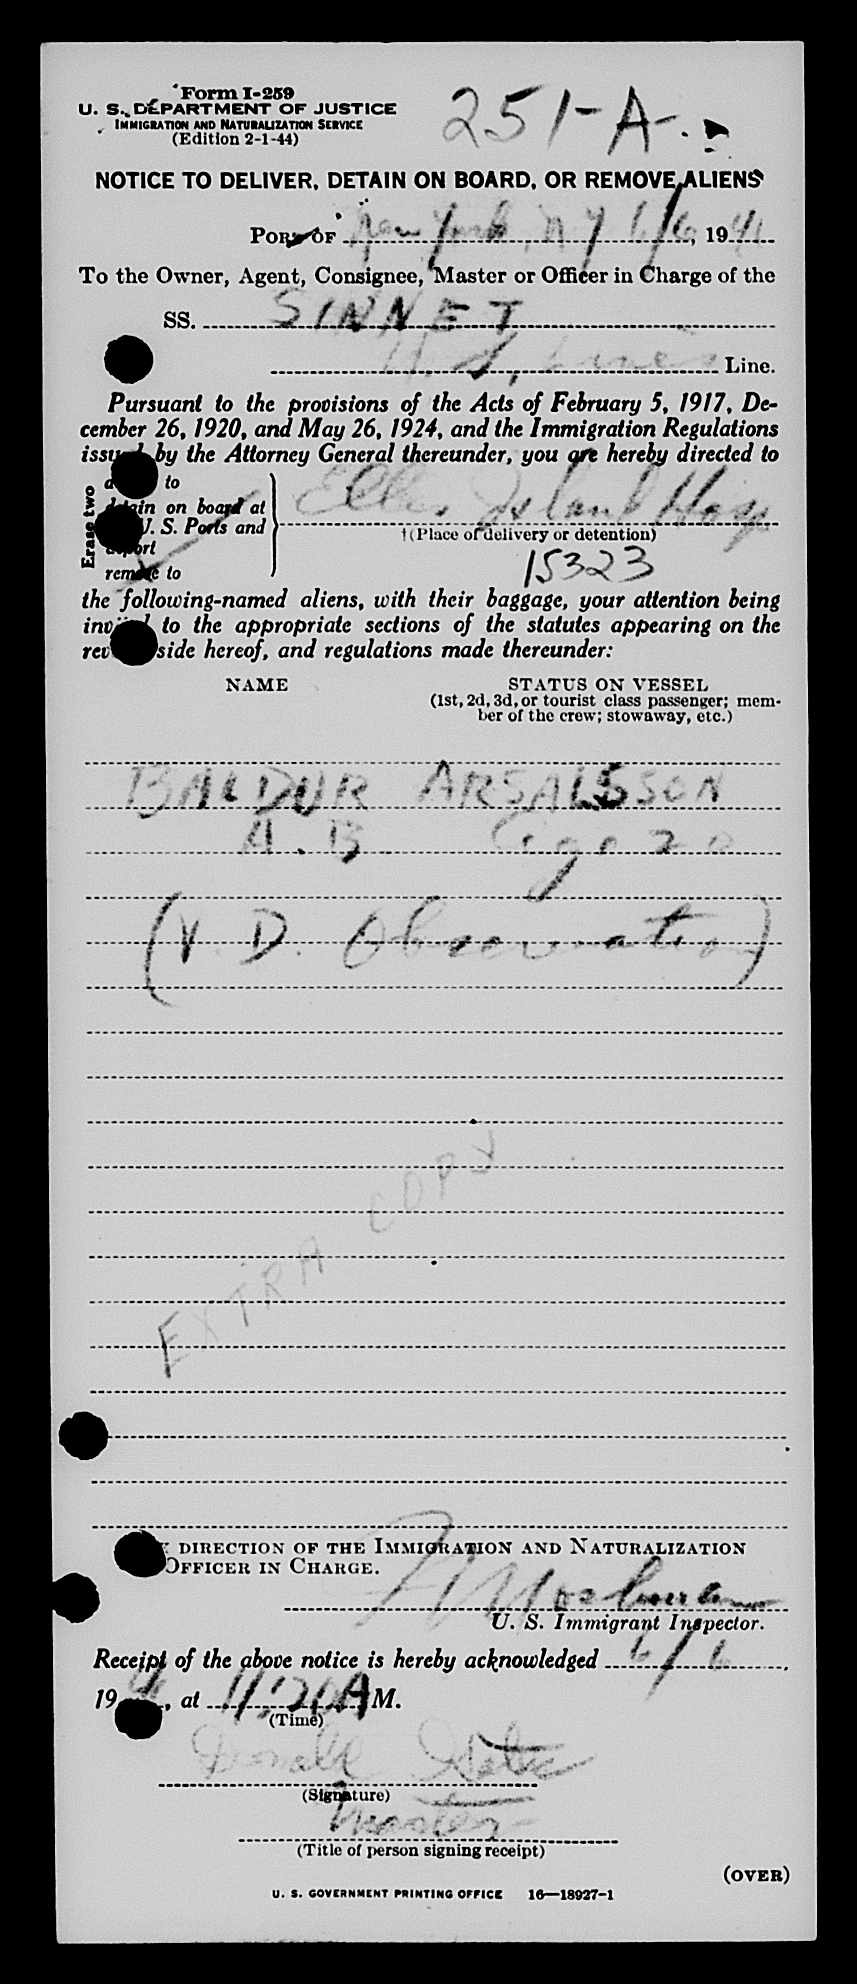 Form I-259
U. S. DEPARTMENT OF JUSTICE
IMMIGRATION AND NATURALIZATION SERVICE
(Edition 2-1-44)
251-A
NOTICE TO DELIVER, DETAIN ON BOARD, OR REMOVE ALIENS
PORT OF New York, NY 6/6, 194
To the Owner, Agent, Consignee, Master or Officer in Charge of the
SS. SINNET
U. S. Lines Line.
Pursuant to the provisions of the Acts of February 5, 1917, De-
cember 26, 1920, and May 26, 1924, and the Immigration Regulations
issued by the Attorney General thereunder, you are hereby directed to
Erase two
to
detain on board at
U. S. Ports and
deport
remove to
Ellis Island Hosp
†(Place of delivery or detention)
15323
the following-named aliens, with their baggage, your attention being
invited to the appropriate sections of the statutes appearing on the
reverse side hereof, and regulations made thereunder:
NAME STATUS ON VESSEL
(1st, 2d, 3d, or tourist class passenger; mem-
ber of the crew; stowaway, etc.)
BALDUR ARSALSSON
A.B. age 20
(V. D. Observation)
EXTRA COPY
BY DIRECTION OF THE IMMIGRATION AND NATURALIZATION
OFFICER IN CHARGE.
U. S. Immigrant Inspector.
Receipt of the above notice is hereby acknowledged 6/6,
19, at 11:20 A M.
(Time)
Donald
(Signature)
Master
(Title of person signing receipt)
(OVER)
U. S. GOVERNMENT PRINTING OFFICE 16—18927-1